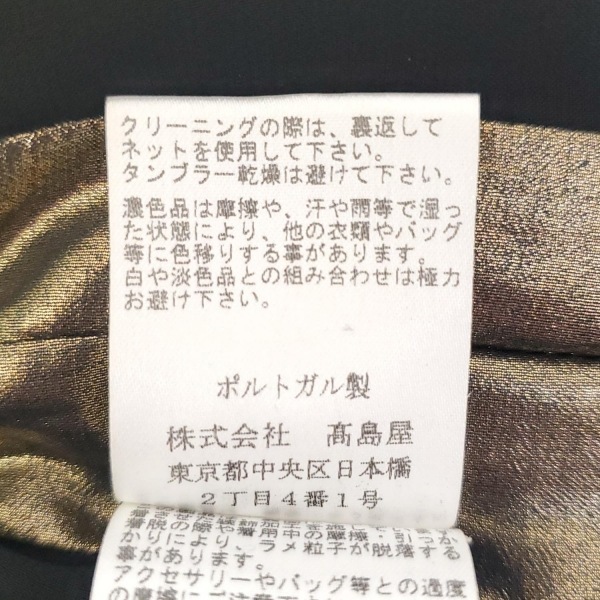 クリーニングの際は、裏返して
ネットを使用して下さい。
タンブラー乾燥は避けて下さい。
濃色品は摩擦や、汗や雨等で湿っ
た状態により、他の衣類やバッグ
等に色移りする事があります。
白や淡色品との組み合わせは極力
お避け下さい。
ポルトガル製
株式会社 髙島屋
東京都中央区日本橋
2丁目4番1号
かりにより、ラメ粒子が脱落する
事があります。
アクセサリーやバッグ等との過度
の摩擦にご注意下